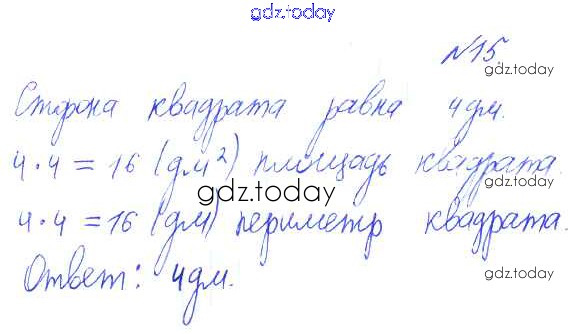 gdz.today
№15
gdz.today
Сторона квадрата равна 4дм.
4·4=16 (дм²) площадь квадрата.
gdz.today
gdz.today
4·4=16 (дм) периметр квадрата.
Ответ: 4дм.
gdz.today